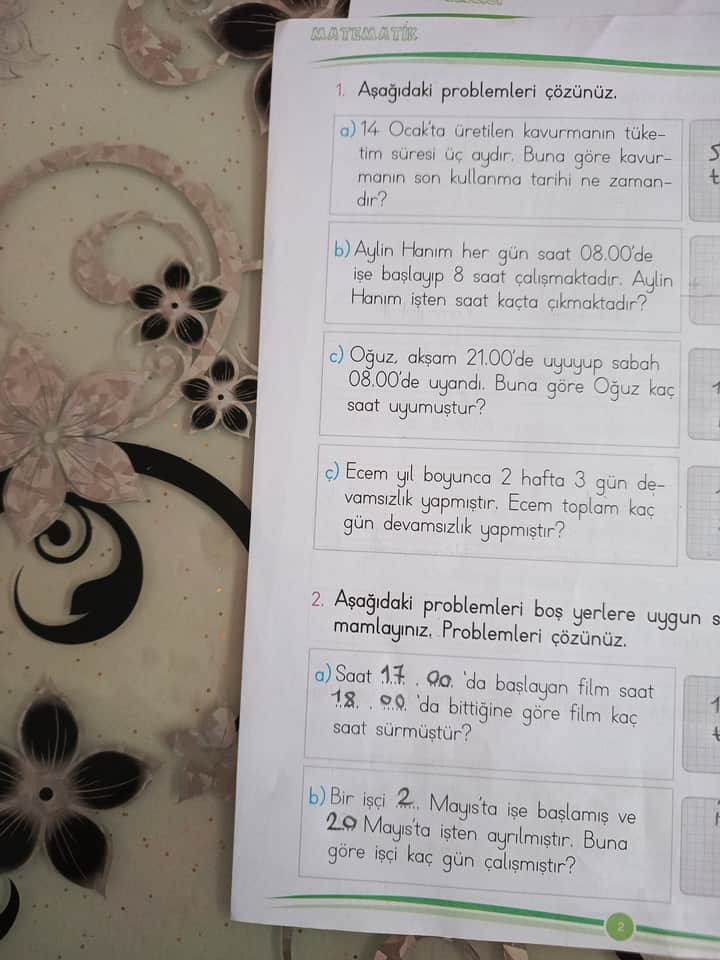 MATEMATİK
1. Aşağıdaki problemleri çözünüz.
a) 14 Ocak'ta üretilen kavurmanın tüke-
tim süresi üç aydır. Buna göre kavur-
manın son kullanma tarihi ne zaman-
dır?
b) Aylin Hanım her gün saat 08.00'de
işe başlayıp 8 saat çalışmaktadır. Aylin
Hanım işten saat kaçta çıkmaktadır?
c) Oğuz, akşam 21.00'de uyuyup sabah
08.00'de uyandı. Buna göre Oğuz kaç
saat uyumuştur?
ç) Ecem yıl boyunca 2 hafta 3 gün de-
vamsızlık yapmıştır. Ecem toplam kaç
gün devamsızlık yapmıştır?
2. Aşağıdaki problemleri boş yerlere uygun s
mamlayınız. Problemleri çözünüz.
a) Saat 17.00 'da başlayan film saat
18.00 'da bittiğine göre film kaç
saat sürmüştür?
b) Bir işçi 2 Mayıs'ta işe başlamış ve
20 Mayıs'ta işten ayrılmıştır. Buna
göre işçi kaç gün çalışmıştır?
2